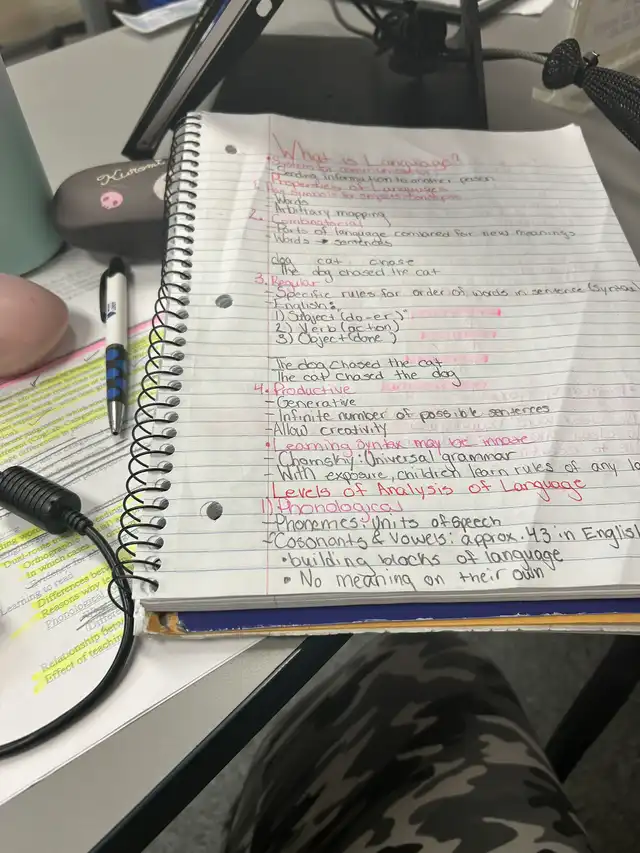 Kuromi
What is Language?
•System for communication
-Sending information to another person
Properties of Languages
1. Use symbols to
-Words
-Arbitrary mapping
2. Combinatorial
-Parts of language compared for new meanings
-Words → sentences
dog cat chase
The dog chased the cat
3. Regular
-Specific rules for order of words in sentence (Syntax
-English:
1) Subject (do-er)
2) Verb (action)
3) Object (done)
The dog chased the cat
The cat chased the dog
4. Productive
-Generative
-Infinite number of possible sentences
-Allow creativity
•Learning Syntax may be innate
-Chomsky: Universal grammar
-With exposure, children learn rules of any la
Levels of Analysis of Language
1) Phonological
-Phonemes: Units of speech
-Cosonants & Vowels: approx. 43 in English
•building blocks of language
• No meaning on their own
In which
Learning to read
Differences be
Reasons why
Phonological
Relationship
Effect of teach